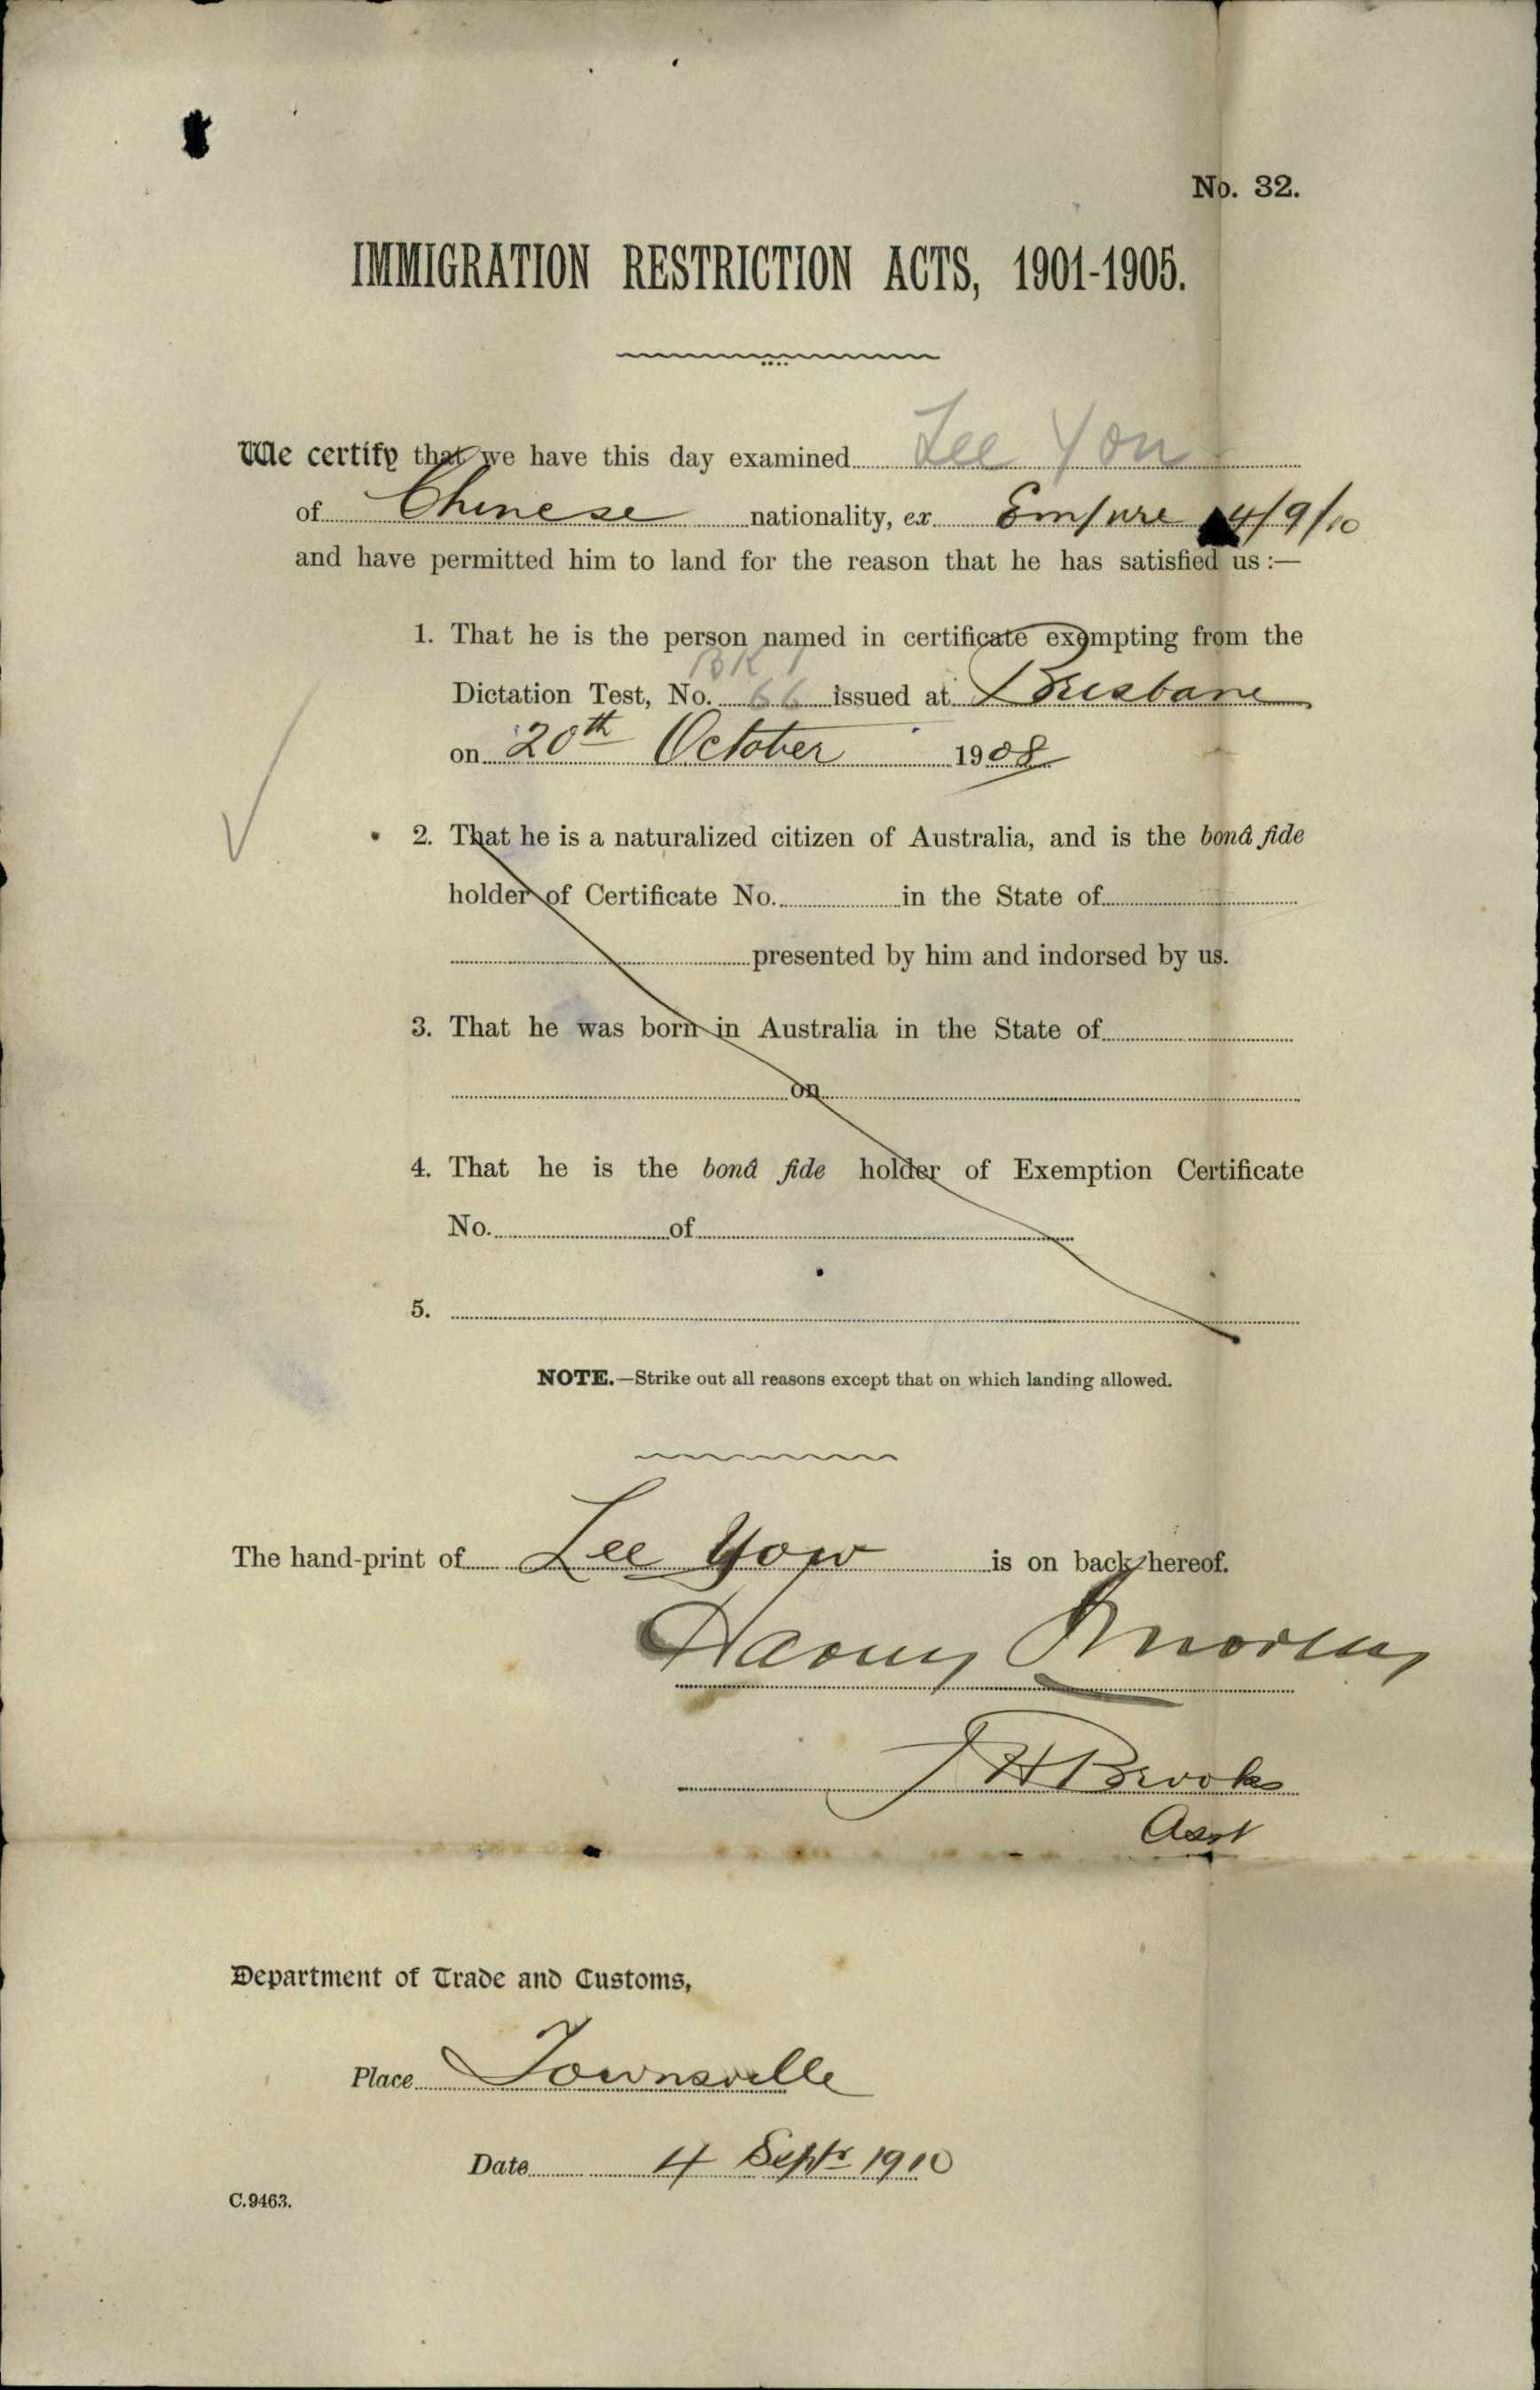 No. 32.
IMMIGRATION RESTRICTION ACTS, 1901-1905.
We certify that we have this day examined Lee You
of Chinese nationality, ex Empire 4/9/10
and have permitted him to land for the reason that he has satisfied us :—
1. That he is the person named in certificate exempting from the
BK 1
Dictation Test, No. 66 issued at Brisbane
on 20th October 1908
2. That he is a naturalized citizen of Australia, and is the bonâ fide
holder of Certificate No. in the State of
presented by him and indorsed by us.
3. That he was born in Australia in the State of
on
4. That he is the bonâ fide holder of Exemption Certificate
No. of
5.
NOTE.—Strike out all reasons except that on which landing allowed.
The hand-print of Lee Yow is on back hereof.
Harry
J H Brooks
Asst
Department of Trade and Customs,
Place Townsville
Date 4 Septr 1910
C.9463.